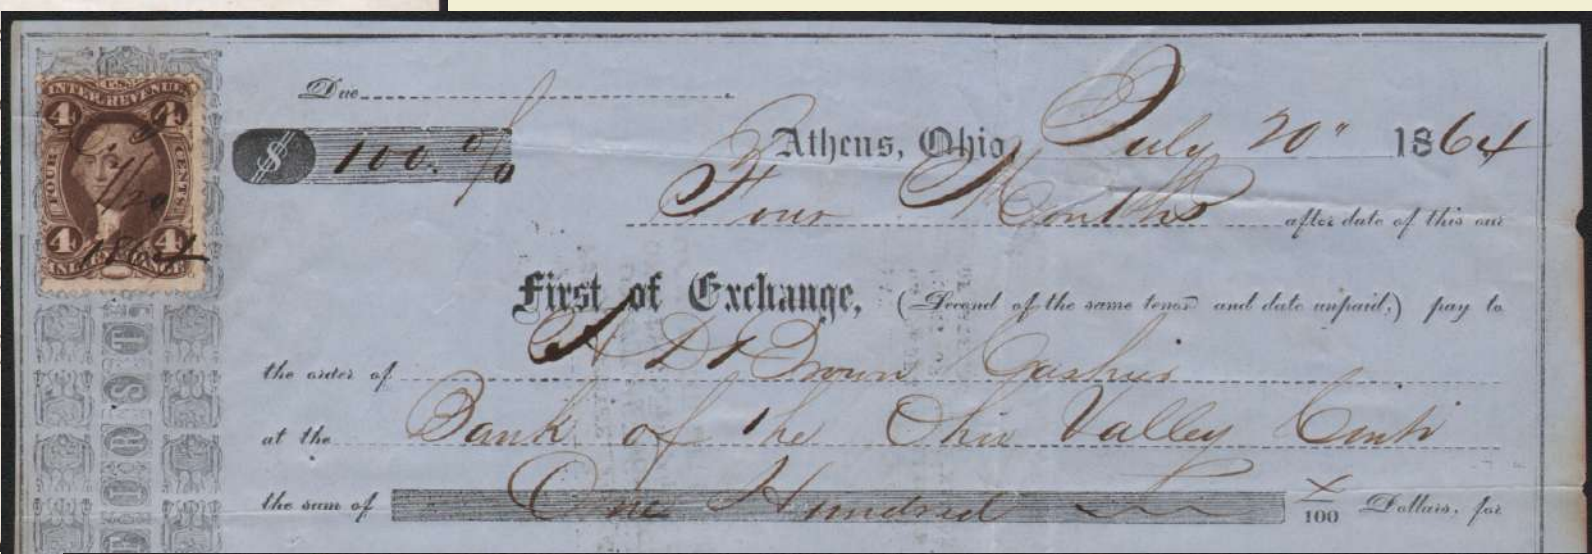 U.S.
INTER. REVENUE
4 4
FOUR CENTS
7/20
1864
4 4
Due
Athens, Ohio, July 20" 1864
$ 100. 0/0
Four Months after date of this our
First of Exchange, (Second of the same tenor and date unpaid,) pay to
the order of A D Brown Cashier
at the Bank of the Ohio Valley Cinti
the sum of One Hundred x/100 Dollars, for